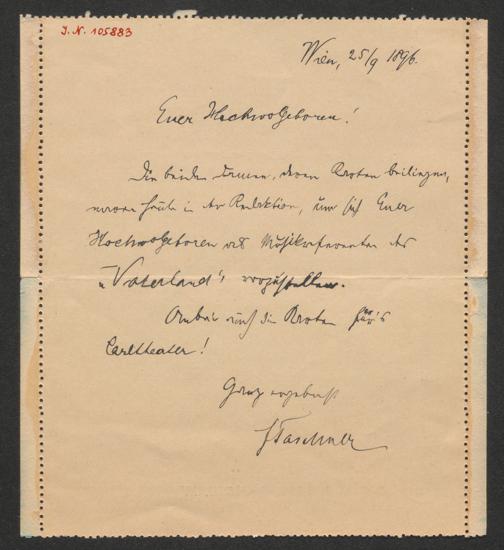 I. N. 105883
Wien, 25/9 1896.
Euer Hochwolgeboren!
Die beiden Damen, deren Karten beiliegen,
waren heute in der Redaktion, um sich Euer
Hochwolgeboren als Musikreferenten des
„Vaterland“s vorzustellen.
Anbei auch die Karten für's
Carltheater!
Ganz ergebenst